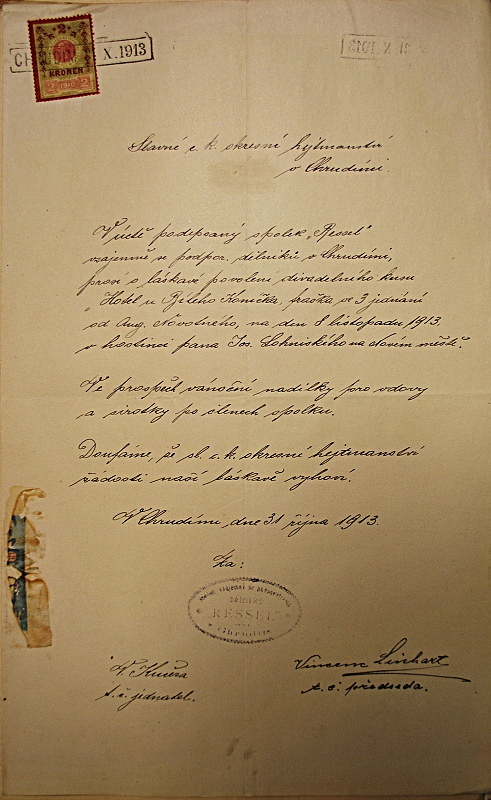 X. 1913
2
KRONEN
2 1910 2
Slavné c. k. okresní hejtmanství
v Chrudimi.
V úctě podepsaný spolek „Ressel"
vzájemně se podpor. dělníků v Chrudimi,
prosí o láskavé povolení divadelního kusu
„Hotel u Bílého Koníčka, fraška ve 3 jednání
od Aug. Novotného, na den 8 listopadu 1913.
v hostinci pana Jos. na novém městě.
Ve prospěch vánoční nadílky pro vdovy
a sirotky po členech spolku.
Doufáme, že sl. c. k. okresní hejtmanství
žádosti naší láskavě vyhoví.
V Chrudimi, dne 31 října 1913.
Za:
„RESSEL"
Chrudim
V. Kučera
t. č. jednatel.
Vincenc Linhart
t. č. předseda.